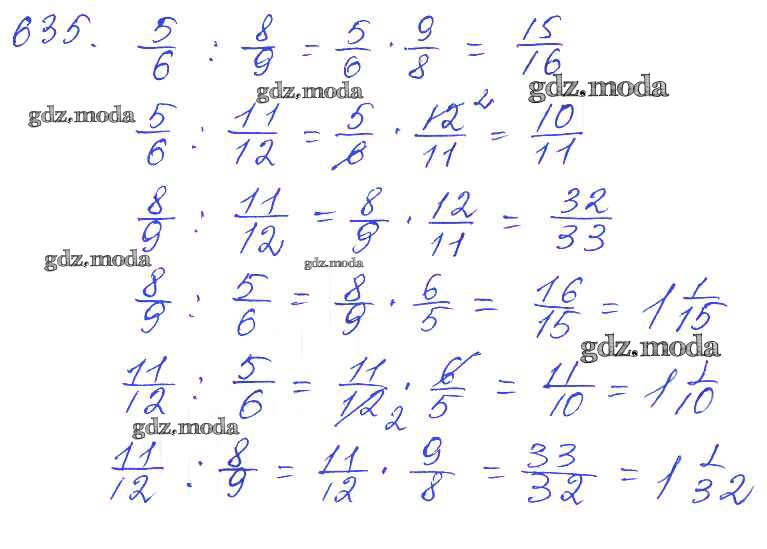 635. 5/6 : 8/9 = 5/6 · 9/8 = 15/16
gdz.moda gdz.moda gdz.moda
5/6 : 11/12 = 5/6 · 12/11 2 = 10/11
8/9 : 11/12 = 8/9 · 12/11 = 32/33
gdz.moda gdz.moda
8/9 : 5/6 = 8/9 · 6/5 = 16/15 = 1 1/15
gdz.moda
11/12 : 5/6 = 11/12 2 · 6/5 = 11/10 = 1 1/10
gdz.moda
11/12 : 8/9 = 11/12 · 9/8 = 33/32 = 1 1/32